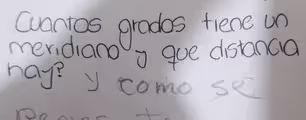 Cuantos grados tiene un
meridiano y que distancia
hay? y como se